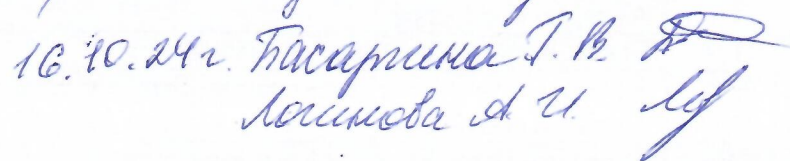 16.10.24г. Басаргина Т. В.
Логинова А. И.